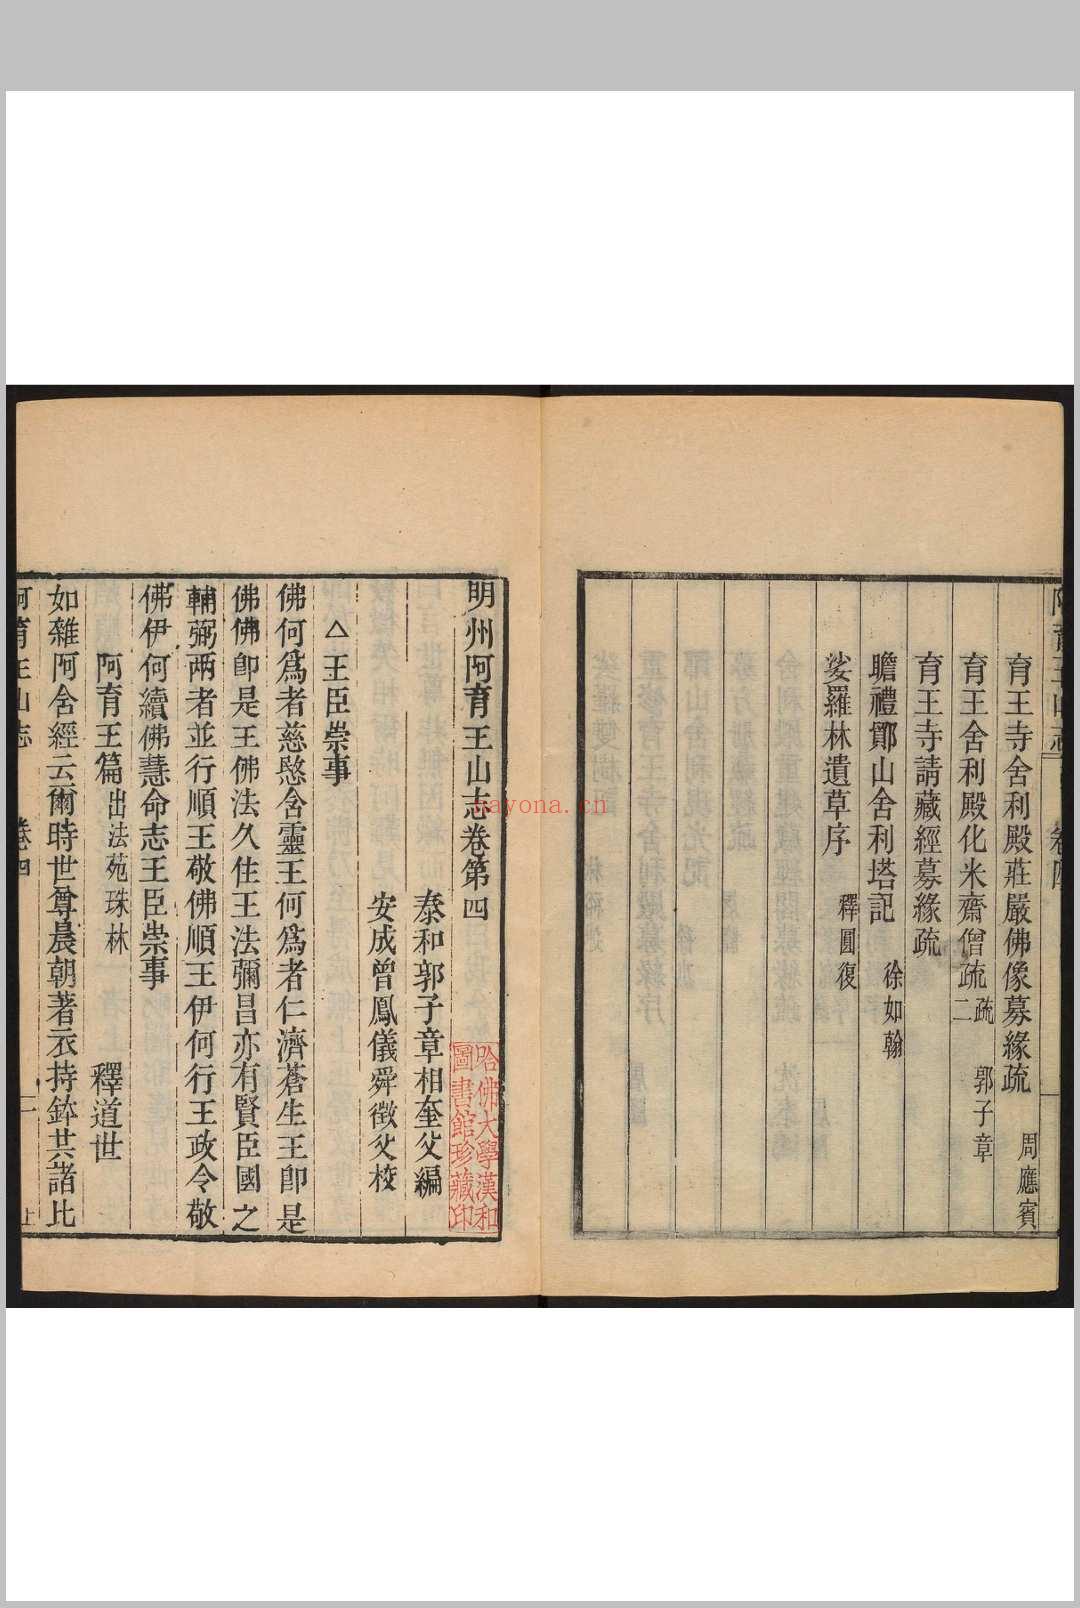 阿育王山志 卷四
育王寺舍利殿莊嚴佛像募緣疏 周應賓
育王舍利殿化米齋僧疏疏二 郭子章
育王寺請藏經募緣疏
瞻禮鄮山舍利塔記 徐如翰
娑羅林遺草序 釋圓復
明州阿育王山志卷第四
泰和郭子章相奎父編
安成曾鳳儀舜徵父校
△王臣崇事
佛何爲者慈愍含靈王何爲者仁濟蒼生王卽是
佛佛卽是王佛法久住王法彌昌亦有賢臣國之
輔弼兩者並行順王敬佛順王伊何行王政令敬
佛伊何續佛慧命志王臣崇事
阿育王篇出法苑珠林 釋道世
如雜阿舍經云爾時世尊晨朝著衣持鉢共諸比
阿育王山志 卷四 一
哈佛大學漢和
圖書館珍藏印
nayona.cn